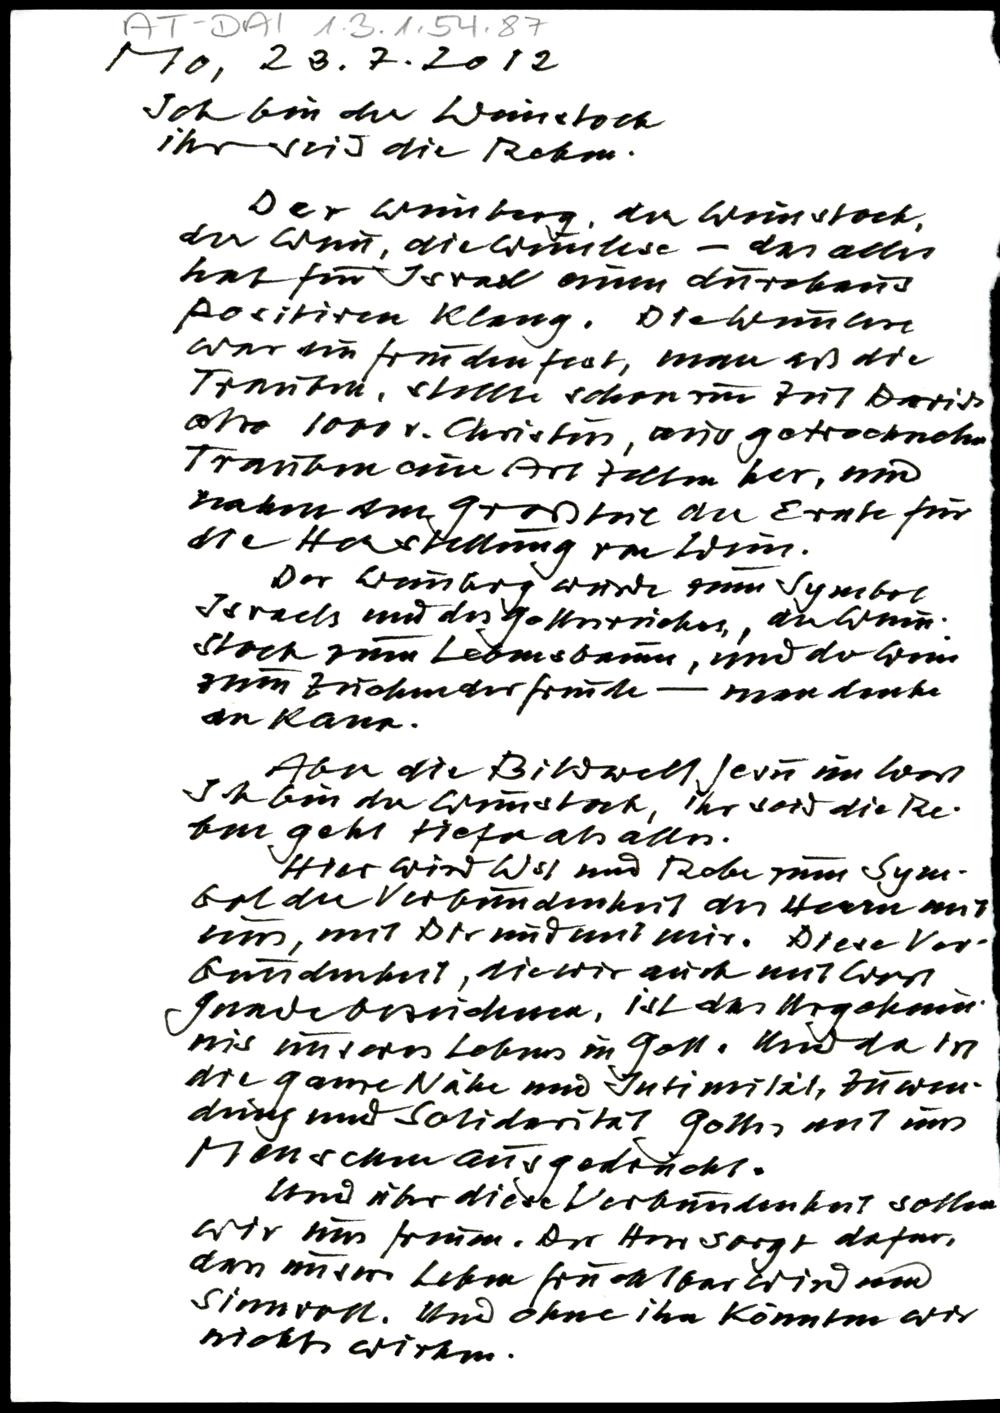 AT-DAI 1.3.1.54.87
Mo, 23.7.2012
Ich bin der Weinstock
ihr seid die Reben.
Der Weinberg, der Weinstock,
der Wein, die Weinlese – das alles
hat für Israel einen durchaus
positiven Klang. Die Weinlese
war ein Freudenfest, man aß die
Trauben, stellte schon zur Zeit Davids
also 1000 v. Christus, aus getrockneten
Trauben eine Art Zelten her, und
nahm den Großteil der Ernte für
die Herstellung von Wein.
Der Weinberg wurde zum Symbol
Israels und des Gottesreiches, der Wein-
stock zum Lebensbaum, und der Wein
zum Zeichen der Freude – man denke
an Kana.
Aber die Bildwelt Jesu im Wort
Ich bin der Weinstock, ihr seid die Re-
ben geht tiefer als alles.
Hier wird und Rebe zum Sym-
bol der Verbundenheit des Herrn mit
uns, mit Dir und mit mir. Diese Ver-
bundenheit, die wir auch mit Wort
Gnade bezeichnen, ist das Urgeheim-
nis unseres Lebens in Gott. Und da ist
die ganze Nähe und Intimität, Zuwen-
dung und Solidarität Gottes mit uns
Menschen ausgedrückt.
Und über diese Verbundenheit sollen
wir uns freuen. Der Herr sorgt dafür,
dass unser Leben fruchtbar wird und
sinnvoll. Und ohne ihn könnten wir
nichts wirken.